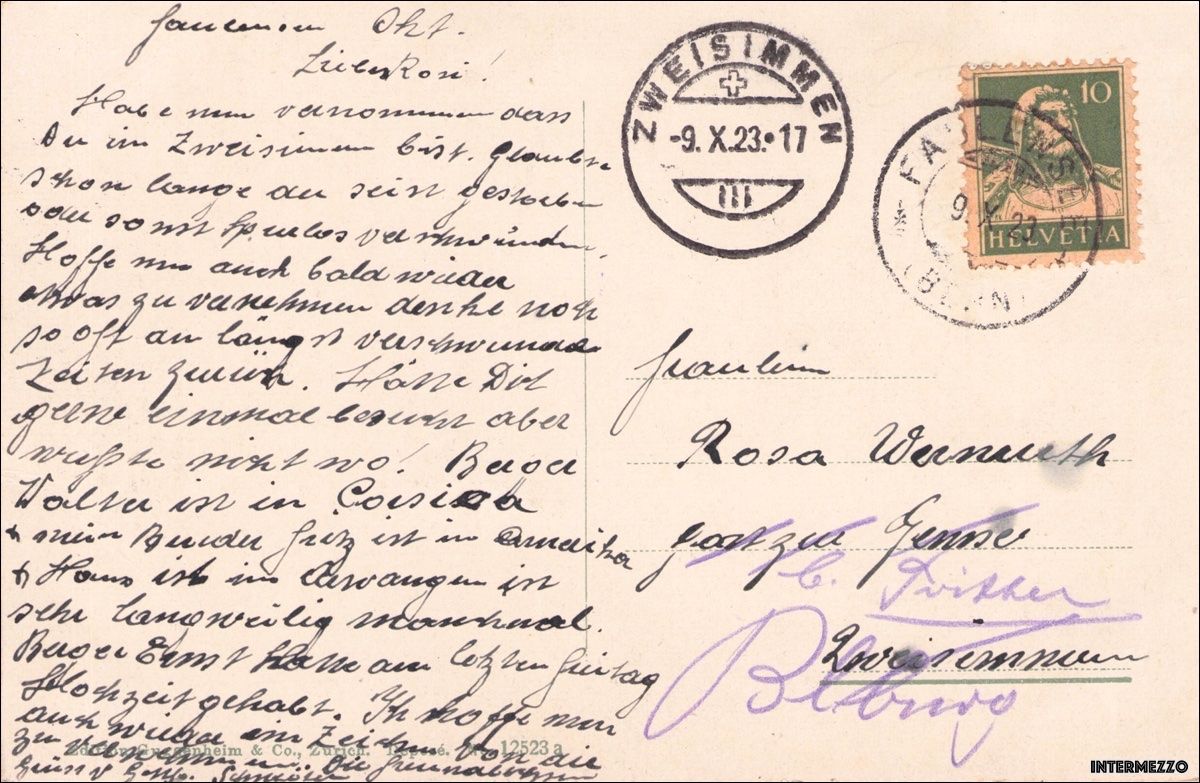 Okt.
Liebe Rosi!
Habe nun vernommen dass
Du in Zweisimmen bist. Glaubte
schon lange du seist gestorben
oder sonst spurlos verschwunden
Hoffe nun auch bald wieder
etwas zu vernehmen denke noch
so oft an längst verschwundene
Zeiten zurück. Hätte Dich
gerne einmal besucht aber
wusste nicht wo! Berger
Walter ist in Corsica
mein Bruder Fritz ist in Amerika
Hans ist in Aarwangen ist
sehr langweilig manchmal.
Berger Ernst hatte am letzten Freitag
Hochzeit gehabt. Ich hoffe nun
auch wieder ein Zeichen von dir
zu vernehmen.
Edition Guggenheim & Co., Zürich. Déposé. No. 12523 a
ZWEISIMMEN
-9. X. 23.-17
III
10
HELVETIA
9. X. 23
(BERN)
Fräulein
Rosa Wermuth
zur
b.
Zweisimmen
INTERMEZZO